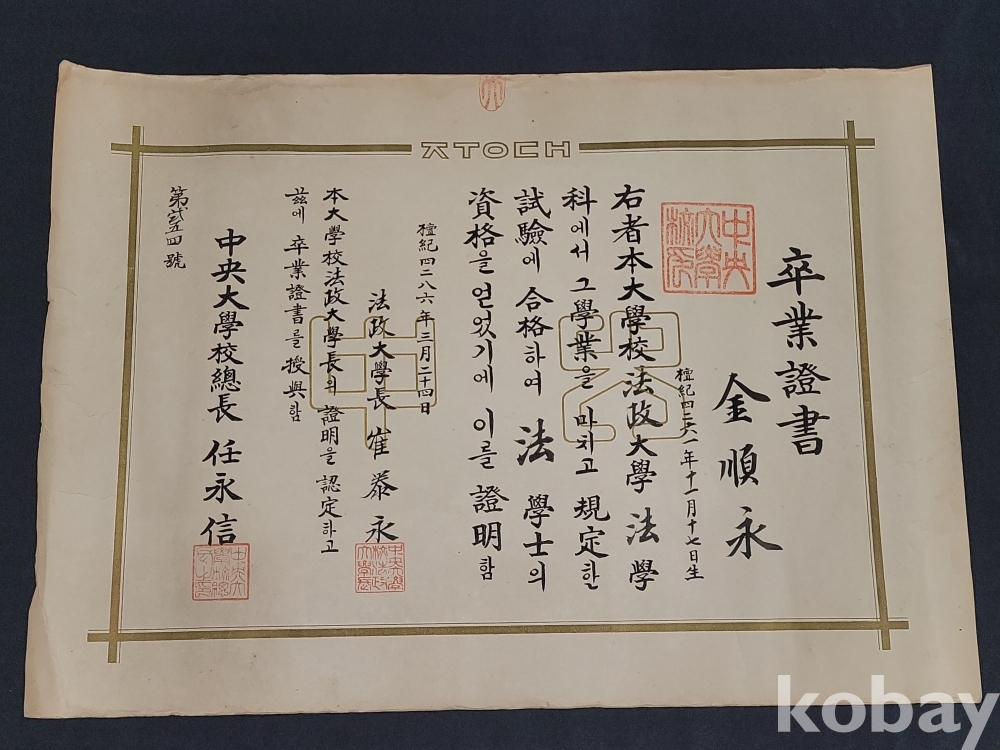 ㅈㅜㅇㄷㅐ
卒業證書
金順永
檀紀四二六一年十一月十七日生
右者本大學校法政大學 法學
科에서 그 學業을 마치고 規定한
試驗에 合格하여 法學士의
資格을 얻었기에 이를 證明함
檀紀四二八六年三月二十四日
法政大學長 崔泰永
本大學校法政大學長의 證明을 認定하고
玆에 卒業證書를 授與함
中央大學校總長 任永信
第弐五四號
kobay